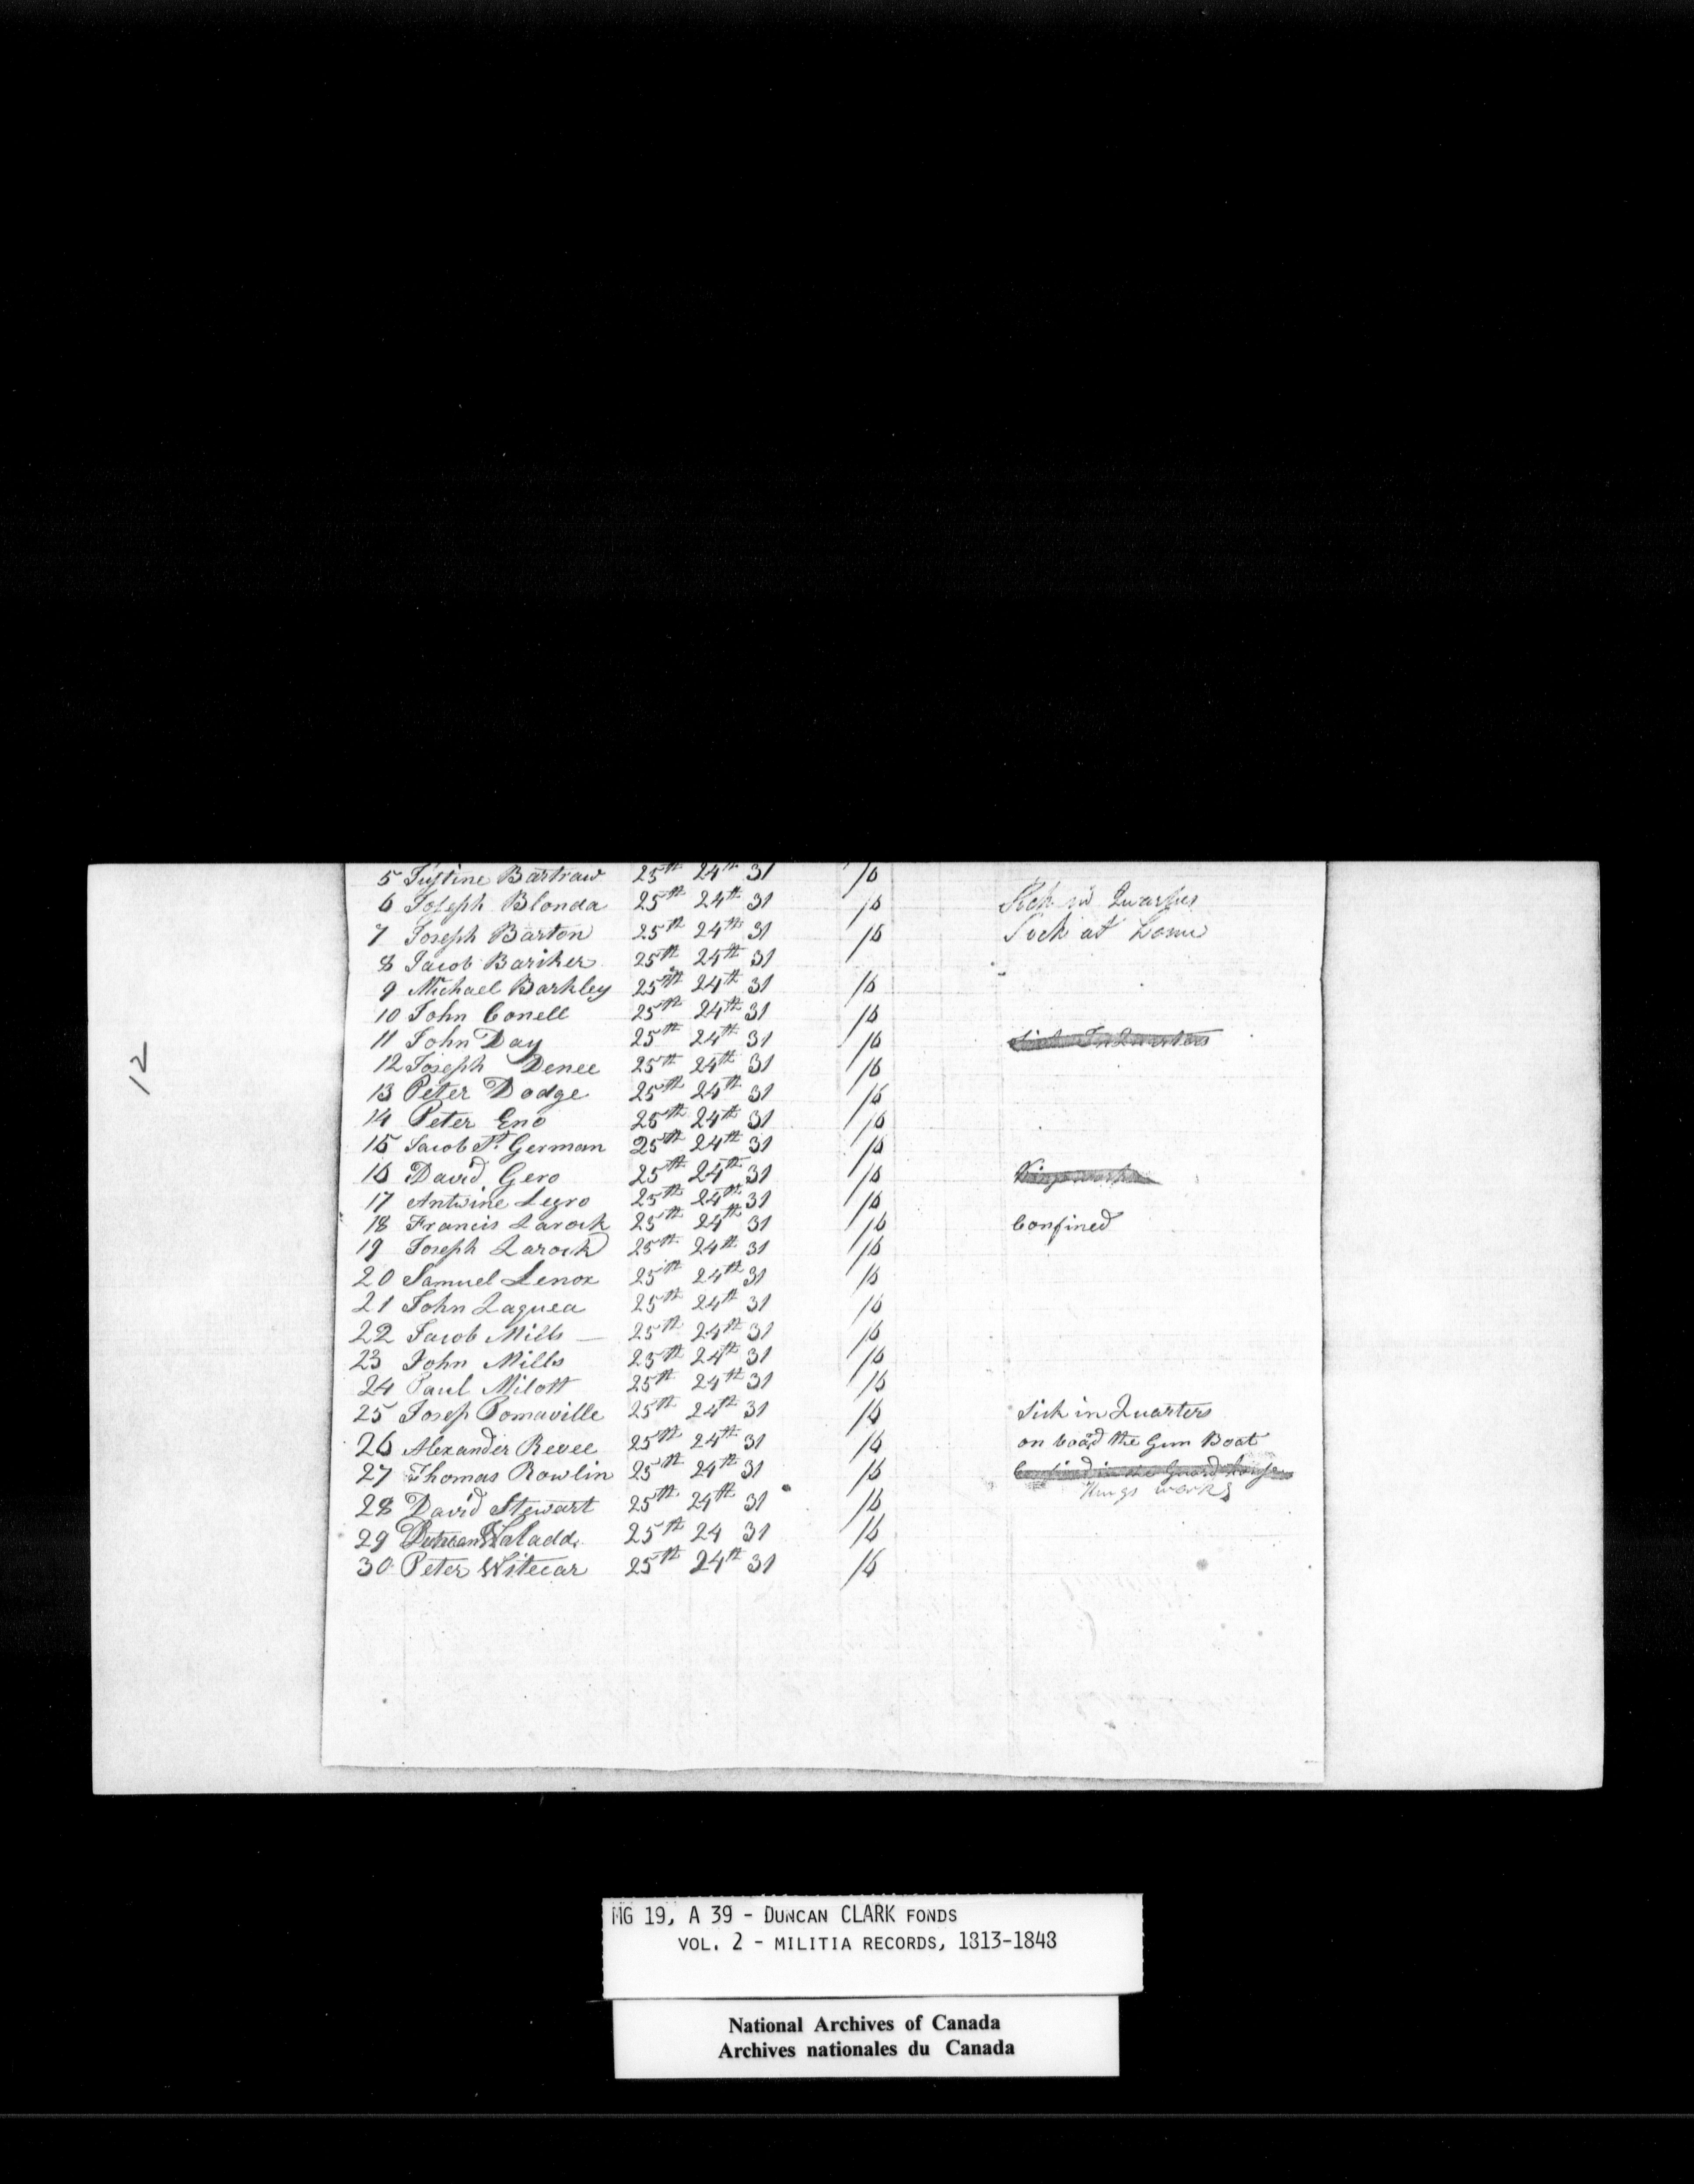 5 Justine Bartraw 25th 24th 31 /6
6 Joseph Blonda 25th 24th 31 /6 Sick in Quarters
7 Joseph Barton 25th 24th 31 /6 Sick at home
8 Jacob Bariker 25th 24th 31
9 Michael Barkley 25th 24th 31 /6
10 John Conell 25th 24th 31 /6
11 John Day 25th 24th 31 /6 Sick In Quarters
12 Joseph Denee 25th 24th 31 /6
13 Peter Dodge 25th 24th 31 /6
14 Peter Eno 25th 24th 31 /6
15 Jacob P. German 25th 24th 31 /6
16 David Gero 25th 24th 31 /6 Kings works
17 Antwine Legro 25th 24th 31 /6
18 Francis Larock 25th 24th 31 /6 Confined
19 Joseph Larock 25th 24th 31 /6
20 Samuel Lenox 25th 24th 31 /6
21 John Laguea 25th 24th 31 /6
22 Jacob Mills — 25th 24th 31 /6
23 John Mills 25th 24th 31 /6
24 Paul Milott 25th 24th 31 /6
25 Josep Pomaville 25th 24th 31 /6 Sick in Quarters
26 Alexander Revee 25th 24th 31 /6 on board the Gun Boat
27 Thomas Rowlin 25th 24th 31 /6 Confined in the Guard house
Kings works
28 David Stewart 25th 24th 31 /6
29 Duncan 25th 24 31 /6
30 Peter Witecar 25th 24th 31 /6
12
MG 19, A 39 - DUNCAN CLARK FONDS
VOL. 2 - MILITIA RECORDS, 1813-1848
National Archives of Canada
Archives nationales du Canada